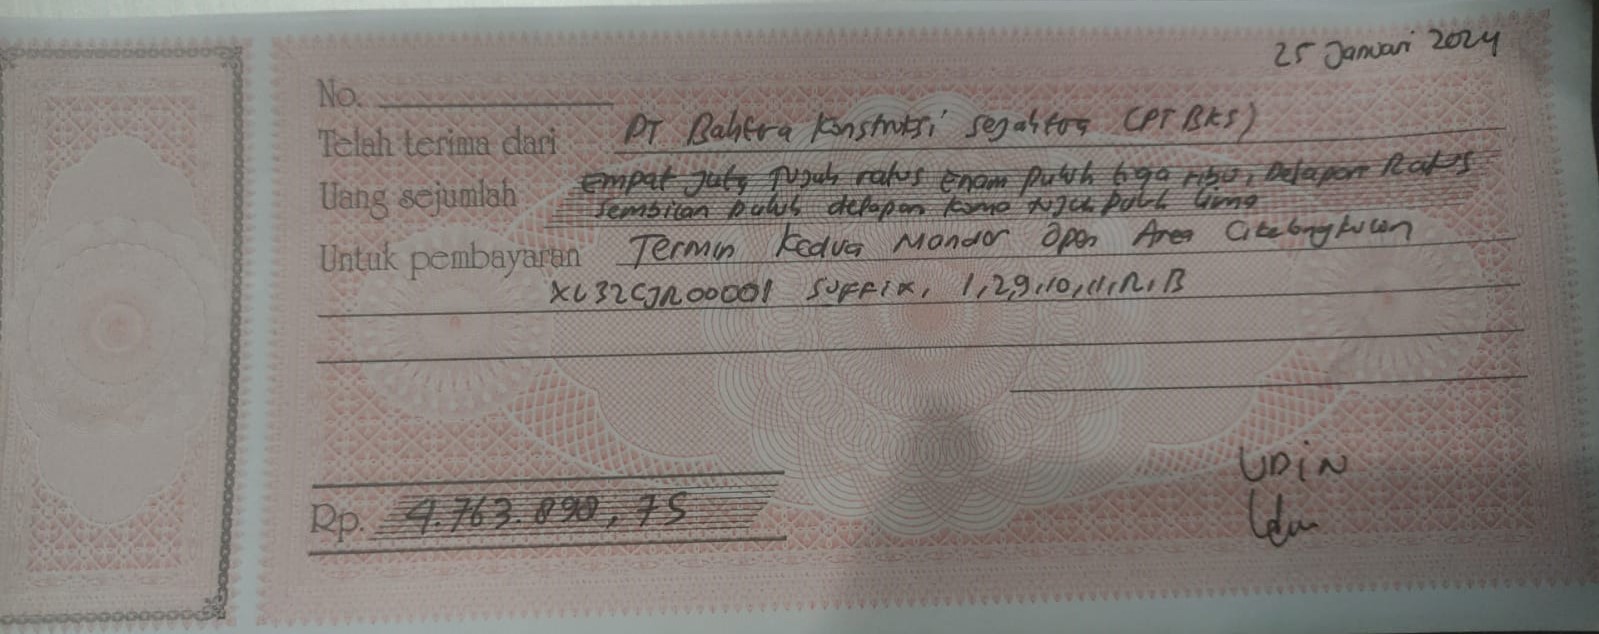 25 Januari 2024
No.
Telah terima dari PT Bahtera Konstruksi Sejahtera (PT BKS)
Uang sejumlah Empat Juta Tujuh ratus Enam Puluh tiga ribu, Delapan Ratus
Sembilan puluh delapan koma tujuh puluh lima
Untuk pembayaran Termin Kedua Mandor Open Area
XL32CJR00001 SUFFIX, 1,2,9,10,11,12,13
Rp. 4.763.898,75
UDIN